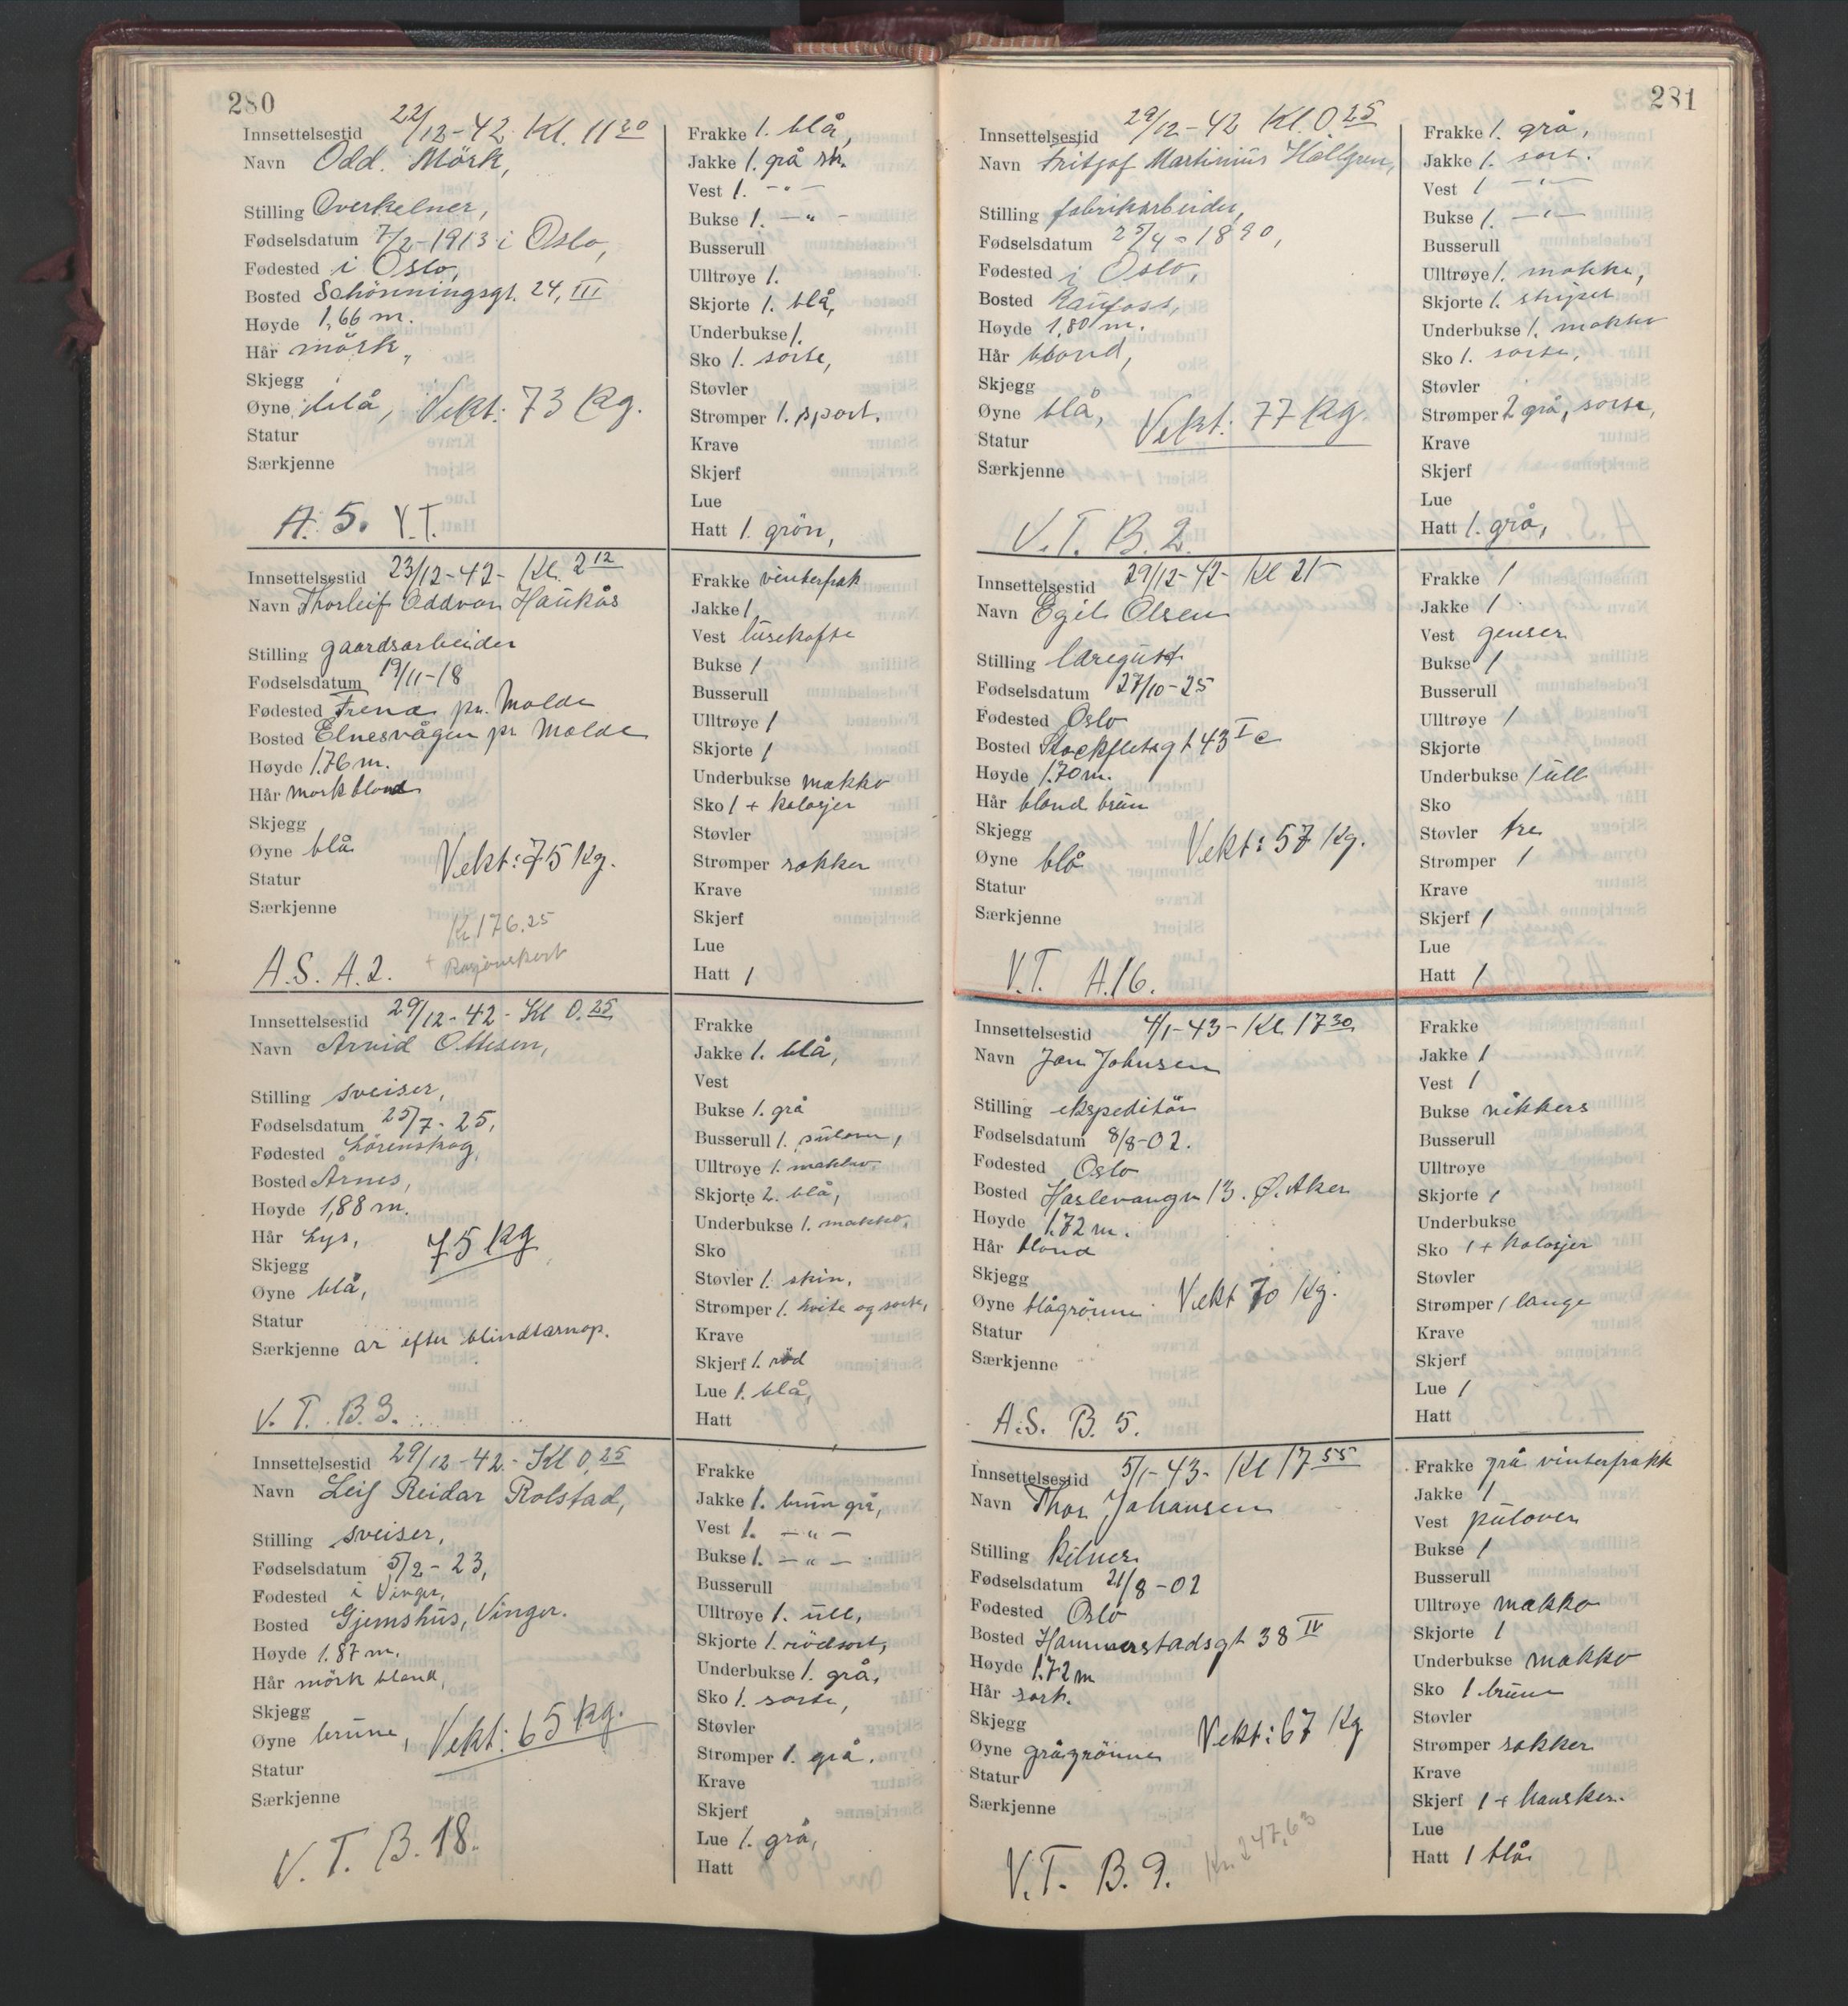 280
Innsettelsestid 22/12-42. Kl. 11 20
Navn Odd. Mörk,
Stilling Overkelner,
Fødselsdatum 7/2-1913 i Oslo,
Fødested i Oslo,
Bosted Schönningsgt. 24, III
Høyde 1,66 m.
Hår mörk,
Skjegg
Øyne blå, Vekt: 73 kg.
Statur
Særkjenne
A. 5. V.T.
Frakke 1. blå,
Jakke 1. grå str.
Vest 1. - " -
Bukse 1. - " -
Busserull
Ulltrøye 1.
Skjorte 1. blå,
Underbukse 1.
Sko 1. sorte,
Støvler
Strømper 1. sport.
Krave
Skjerf
Lue
Hatt 1. grön,
Innsettelsestid 23/12-42- Kl. 2 12
Navn Thorleif Oddvar Haukås
Stilling gaardsarbeider
Fødselsdatum 19/11-18
Fødested Frena pr. Molde
Bosted Elnesvågen pr Molde
Høyde 1.76 m.
Hår mörkblond
Skjegg
Øyne blå Vekt: 75 Kg.
Statur
Særkjenne
Kr 176.25
+ Rasjonskort
A.S. A.2.
Frakke vinterfrak
Jakke 1
Vest lusekofte
Bukse 1
Busserull
Ulltrøye 1
Skjorte 1
Underbukse makko
Sko 1 + kalosjer
Støvler
Strømper sokker
Krave
Skjerf
Lue
Hatt 1
Innsettelsestid 29/12-42- Kl 0.25
Navn Arvid Ottesen,
Stilling sveiser,
Fødselsdatum 25/7-25,
Fødested Lörenskog,
Bosted Årnes,
Høyde 1,88 m.
Hår Lys, 75 kg
Skjegg
Øyne blå,
Statur
Særkjenne ar efter blindtarmop.
V. T. B.3.
Frakke
Jakke 1. blå,
Vest
Bukse 1. grå
Busserull 1. pulover,
Ulltrøye 1. makko,
Skjorte 2. blå,
Underbukse 1. makko,
Sko
Støvler 1. skin,
Strømper 1. hvite og sorte,
Krave
Skjerf 1. röd
Lue 1. blå,
Hatt
Innsettelsestid 29/12-42- Kl 0,25
Navn Leif Reidar Rolstad,
Stilling sveiser,
Fødselsdatum 5/2-23,
Fødested i Vinger,
Bosted Gjemshus, Vinger.
Høyde 1.87 m.
Hår mörk blond,
Skjegg
Øyne brune, Vekt: 65 kg.
Statur
Særkjenne
V. T. B. 18.
Frakke
Jakke 1. brun grå,
Vest 1. - " -
Bukse 1. - " -
Busserull
Ulltrøye 1. ull,
Skjorte 1. rödsort,
Underbukse 1. grå,
Sko 1. sorte,
Støvler
Strømper 1. grå.
Krave
Skjerf
Lue 1. grå,
Hatt
281
Innsettelsestid 29/12-42 Kl. 0 25
Navn Fritjof Martinius Hallgren,
Stilling fabrikarbeider,
Fødselsdatum 25/4-1890,
Fødested i Oslo,
Bosted Raufoss,
Høyde 1,80 m.
Hår blond,
Skjegg
Øyne blå, Vekt: 77 kg.
Statur
Særkjenne
V. T. B. 2.
Frakke 1. grå,
Jakke 1. sort.
Vest 1 - " -
Bukse 1. - " -
Busserull
Ulltrøye 1. makko,
Skjorte 1. stripet
Underbukse 1. makko
Sko 1. sorte,
Støvler
Strømper 2 grå, sorte,
Krave
Skjerf
Lue
Hatt 1. grå,
Innsettelsestid 29/12-42- Kl 21-
Navn Egil Olsen
Stilling
Fødselsdatum 27/10-25
Fødested Oslo
Bosted Stockfletsgt 43 I c
Høyde 1.70 m.
Hår blond brun
Skjegg
Øyne blå Vekt: 57 Kg.
Statur
Særkjenne
V.T. A.16.
Frakke 1
Jakke 1
Vest genser
Bukse 1
Busserull
Ulltrøye 1
Skjorte
Underbukse 1 ull
Sko
Støvler tre
Strømper 1
Krave
Skjerf 1
Lue
Hatt 1
Innsettelsestid 4/1-43- Kl. 17 30
Navn Jan Johnsen
Stilling ekspeditör
Fødselsdatum 8/8-02.
Fødested Oslo
Bosted Haslevangn 13. Ø. Aker
Høyde 1.72 m.
Hår blond
Skjegg
Øyne blågrönne Vekt 70 Kg.
Statur
Særkjenne
A.S. B. 5.
Frakke
Jakke 1
Vest 1
Bukse nikkers
Busserull
Ulltrøye
Skjorte 1
Underbukse
Sko 1 + kalosjer
Støvler
Strømper 1 lange
Krave
Skjerf
Lue 1
Hatt
Innsettelsestid 5/1-43- Kl 17 55
Navn Thor Johansen
Stilling kelner
Fødselsdatum 21/8-02
Fødested Oslo
Bosted Hammerstadsgt 38 IV
Høyde 1.72 m
Hår sort.
Skjegg
Øyne grågrönne Vekt: 67 Kg
Statur
Særkjenne
Kr. 247,63
V.T. B. 9.
Frakke grå vinterfrakk
Jakke 1
Vest pulover
Bukse 1
Busserull
Ulltrøye makko
Skjorte 1
Underbukse makko
Sko 1 brune
Støvler
Strømper sokker
Krave
Skjerf 1 + hansker.
Lue
Hatt 1 blå